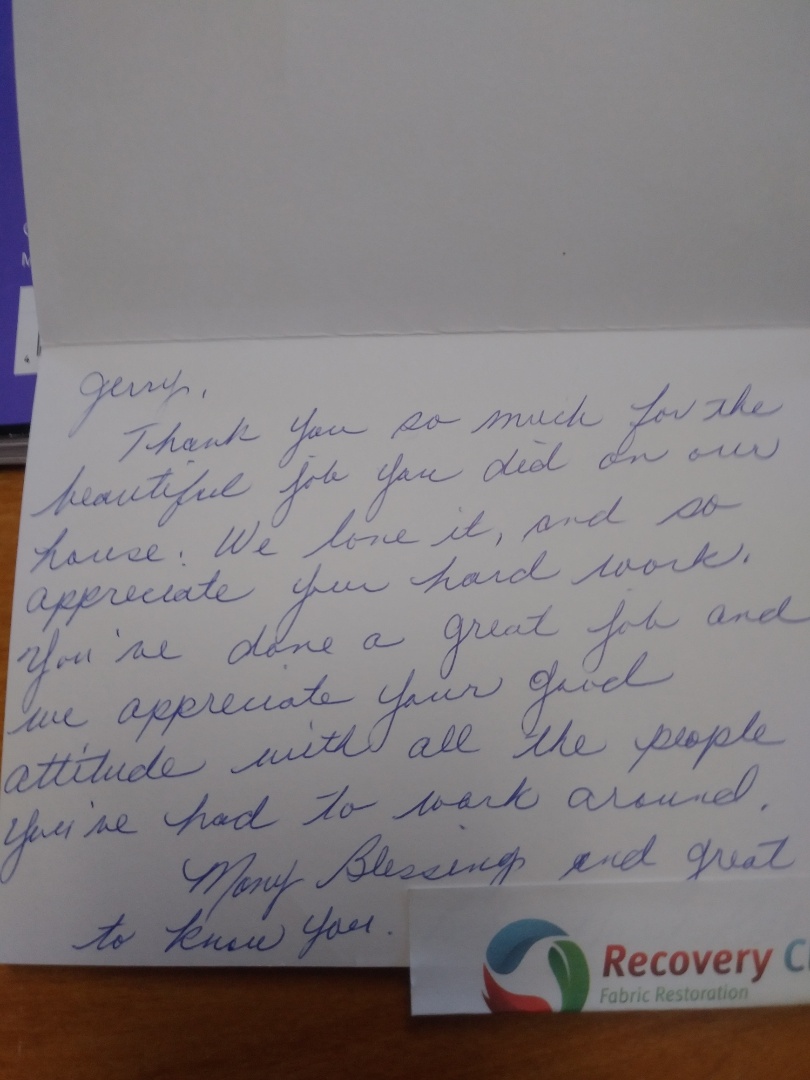 Jerry,
Thank you so much for the
beautiful job you did on our
house. We love it, and so
appreciate your hard work.
You've done a great job and
we appreciate your good
attitude with all the people
you've had to work around.
Many Blessings and great
to know you.
Recovery
Fabric Restoration